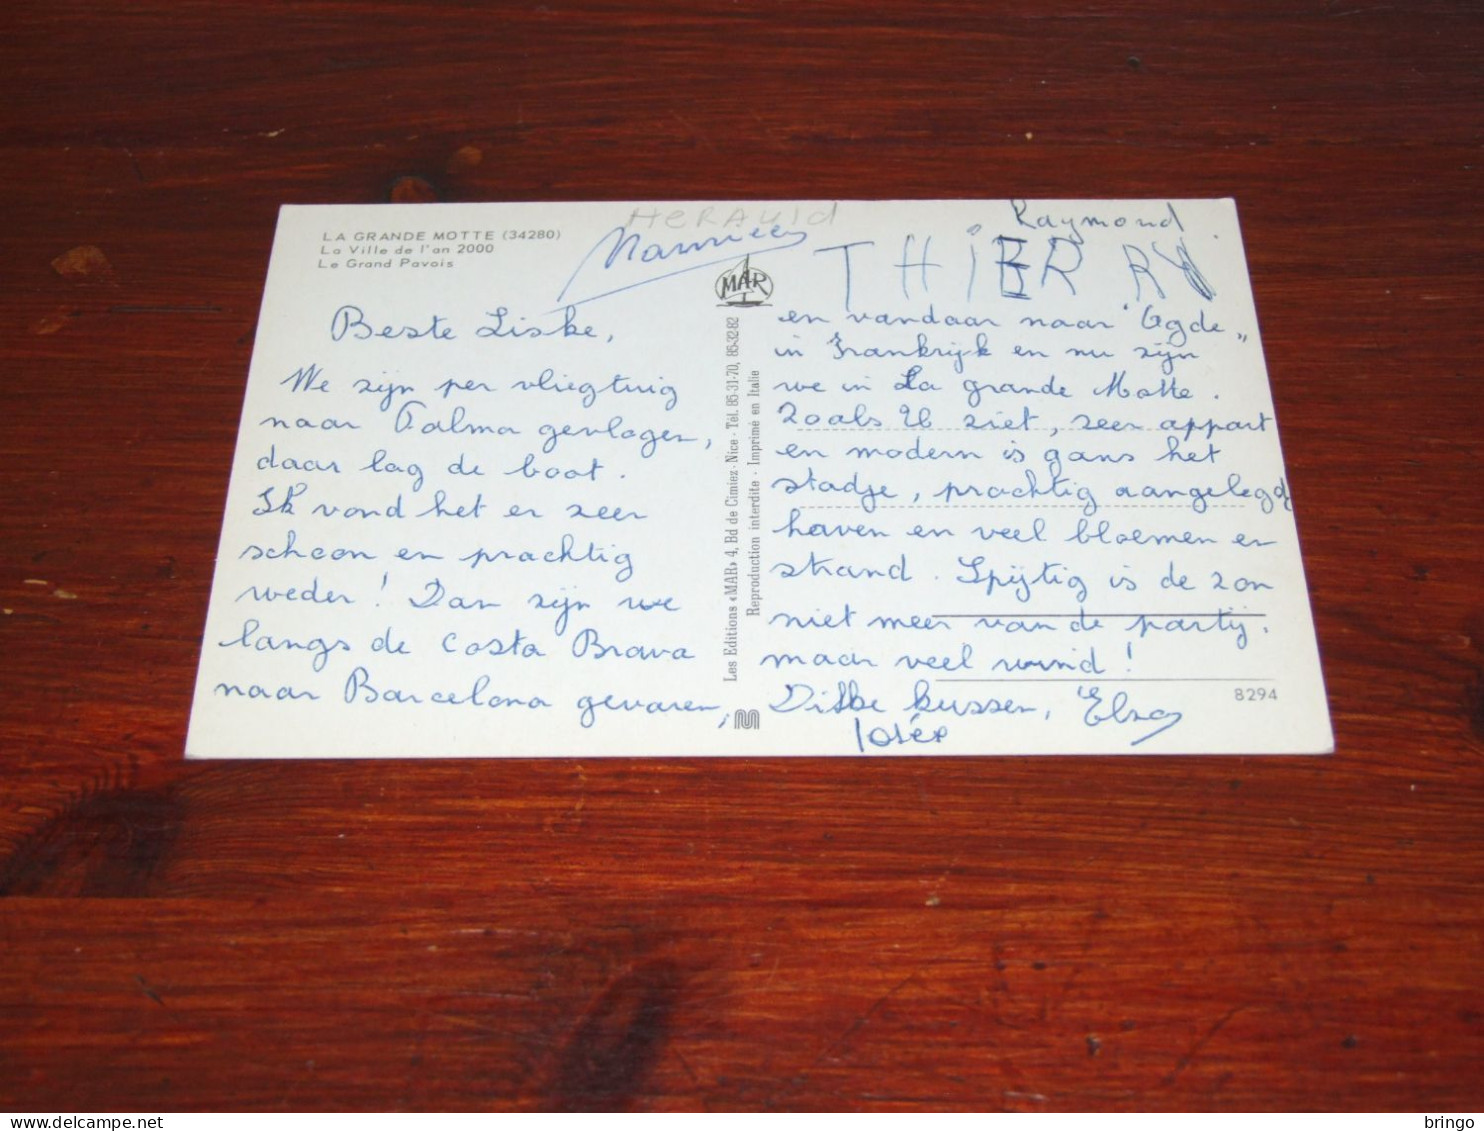 LA GRANDE MOTTE (34280)
La Ville de l'an 2000
Le Grand Pavois
HERAULD
Raymond
THIERRY
MAR
Beste Liske,
We zijn per vliegtuig
naar Palma gevlogen,
daar lag de boot.
Ik vond het er zeer
schoon en prachtig
weder! Dan zijn we
langs de Costa Brava
naar Barcelona gevaren,
Les Editions «MAR» 4, Bd de Cimiez - Nice - Tél. 85-31-70, 85-32-82
Reproduction interdite - Imprimé en Italie
en vandaar naar "Agde"
in Frankrijk en nu zijn
we in La grande Motte.
Zoals U ziet, zeer appart
en modern is gans het
stadje, prachtig aangelegd
haven en veel bloemen en
strand. Spijtig is de zon
niet meer van de partij.
maar veel wind!
Dikke kussen, Elza
José
8294
bringo
delcampe.net